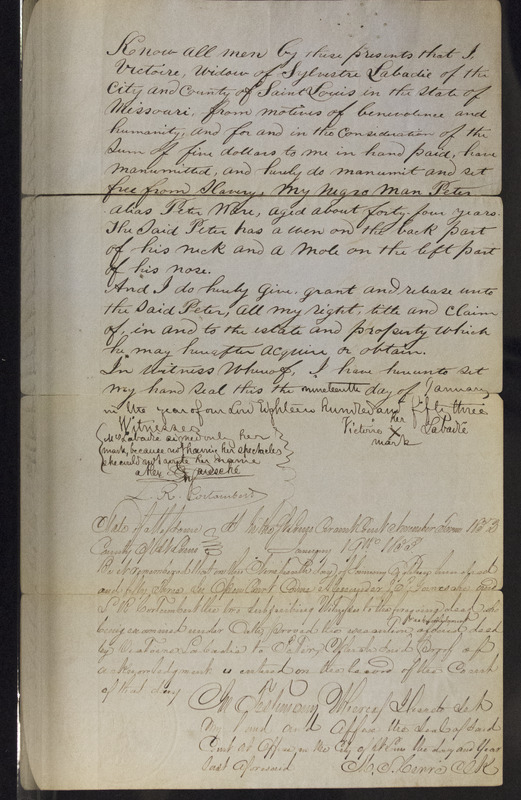 Know all men by these presents that I,
Victoire, Widow of Sylvestre Labadie of the
City and County of Saint Louis in the State of
Missouri, from motives of benevolence and
humanity, and for and in the consideration of the
Sum of five dollars to me in hand paid, have
manumitted, and hereby do manumit and set
free from Slavery, My Negro Man Peter
alias Peter Ware, aged about forty four years.
The Said Peter has a wen on the back part
of his neck and a Mole on the left part
of his nose.
And I do hereby Give, grant and release unto
the Said Peter, all my right, title and Claim
of, in and to the estate and property which
he may hereafter acquire or obtain.
In Witness Whereof, I have hereunto set
my hand seal this the nineteenth day of January
in the year of our Lord Eighteen hundred and fifty three.
Witnesses
her
Victoire X Labadie
mark
Mrs Labadie signed only her
mark, because not having her spectacles
she could not write her name
L. R. Cortambert
State of Missouri
County of St Louis
January 19th 1853
Be it remembered that on this Nineteenth day of January Eighteen hundred
and fifty three in Open Court Came
L R Cortambert the two Subscribing Witnesses to the foregoing deed, who
being examined under Oath, proved the execution
by Victoire Labadie to
acknowledgment is entered on the record of the Court
of that day
In Testimony Whereof I hereto Set
my hand and Affix the Seal of Said
Court at Office in the City of St Louis the day and Year
last aforesaid